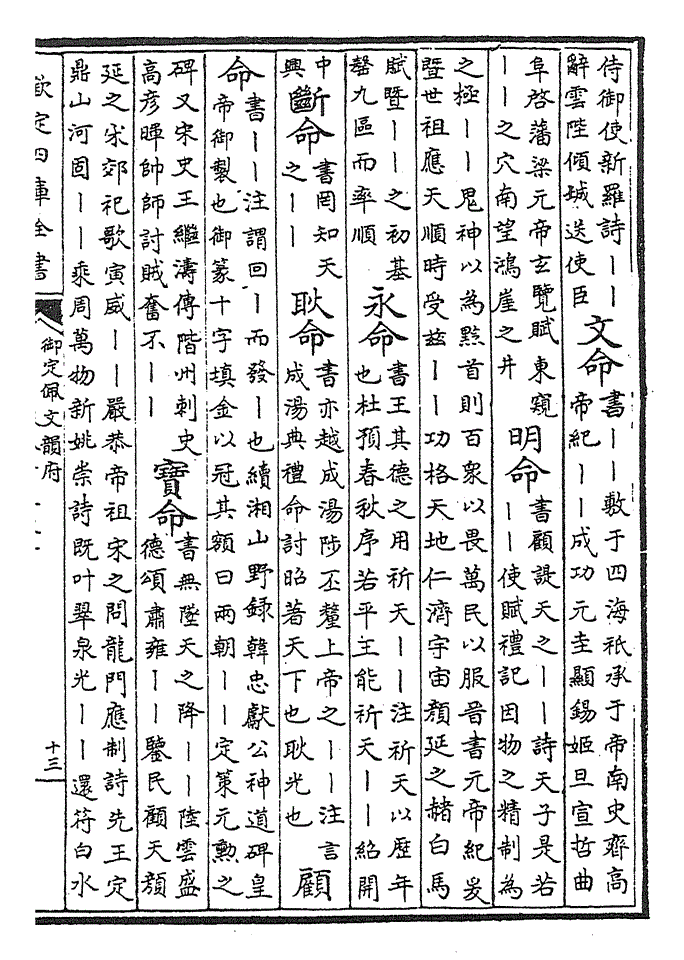 侍御使新羅詩丨丨
辭雲陛傾城送使臣
文命
書丨丨敷于四海祇承于帝南史齊高
帝紀丨丨成功元圭顯錫姬旦宣哲曲
阜啓藩梁元帝玄覽賦東窺
丨丨之穴南望鴻崖之井
明命
書顧諟天之丨丨詩天子是若
丨丨使賦禮記因物之精制為
之極丨丨鬼神以為黔首則百衆以畏萬民以服晉書元帝紀爰
曁世祖應天順時受兹丨丨功格天地仁濟宇宙顔延之赭白馬
賦曁丨丨之初基
罄九區而率順
永命
書王其德之用祈天丨丨注祈天以歴年
也杜預春秋序若平王能祈天丨丨紹開
中
興
斷命
書罔知天
之丨丨
耿命
書亦越成湯陟丕釐上帝之丨丨注言
成湯典禮命討昭著天下也耿光也
顧
命
書丨丨注謂回丨而發丨也續湘山野録韓忠獻公神道碑皇
帝御製也御篆十字填金以冠其額曰兩朝丨丨定策元勲之
碑又宋史王繼濤傳階州刺史
高彦暉帥師討賊奮不丨丨
寶命
書無墜天之降丨丨陸雲盛
德頌肅雍丨丨鑒民顧天顔
延之宋郊祀歌寅威丨丨嚴恭帝祖宋之問龍門應制詩先王定
鼎山河固丨丨乘周萬物新姚崇詩既叶翠泉光丨丨還符白水
欽定四庫全書
御定佩文韻府
十三